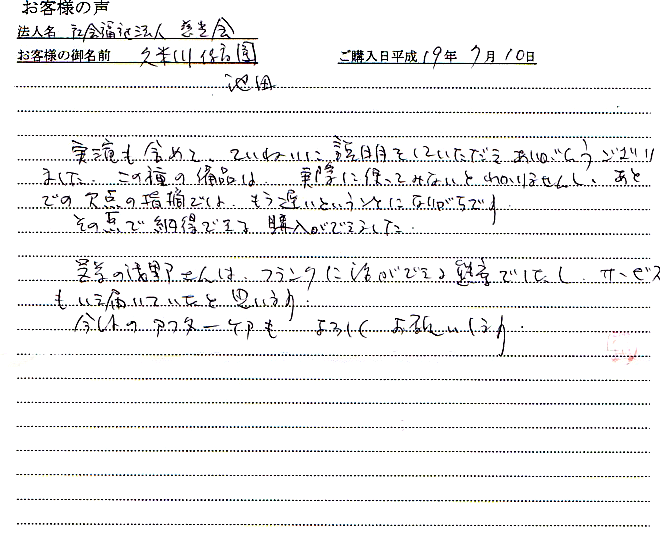 お客様の声
法人名 社会福祉法人 慈光会
お客様の御名前 久米川保育園 ご購入日平成19年7月10日
池田
実演も含めて、ていねいに説明をしていただきありがとうござり
ました。この種の備品は、実際に使ってみないとわかりませんし、あと
での欠点の指摘では、もう遅いということになりがちです。
その点で納得できる購入ができました。
営業の浅野さんは、フランクに話ができる営業でしたし、サービス
もいき届いていたと思います。
今後のアフターケアも よろしく お願いします。